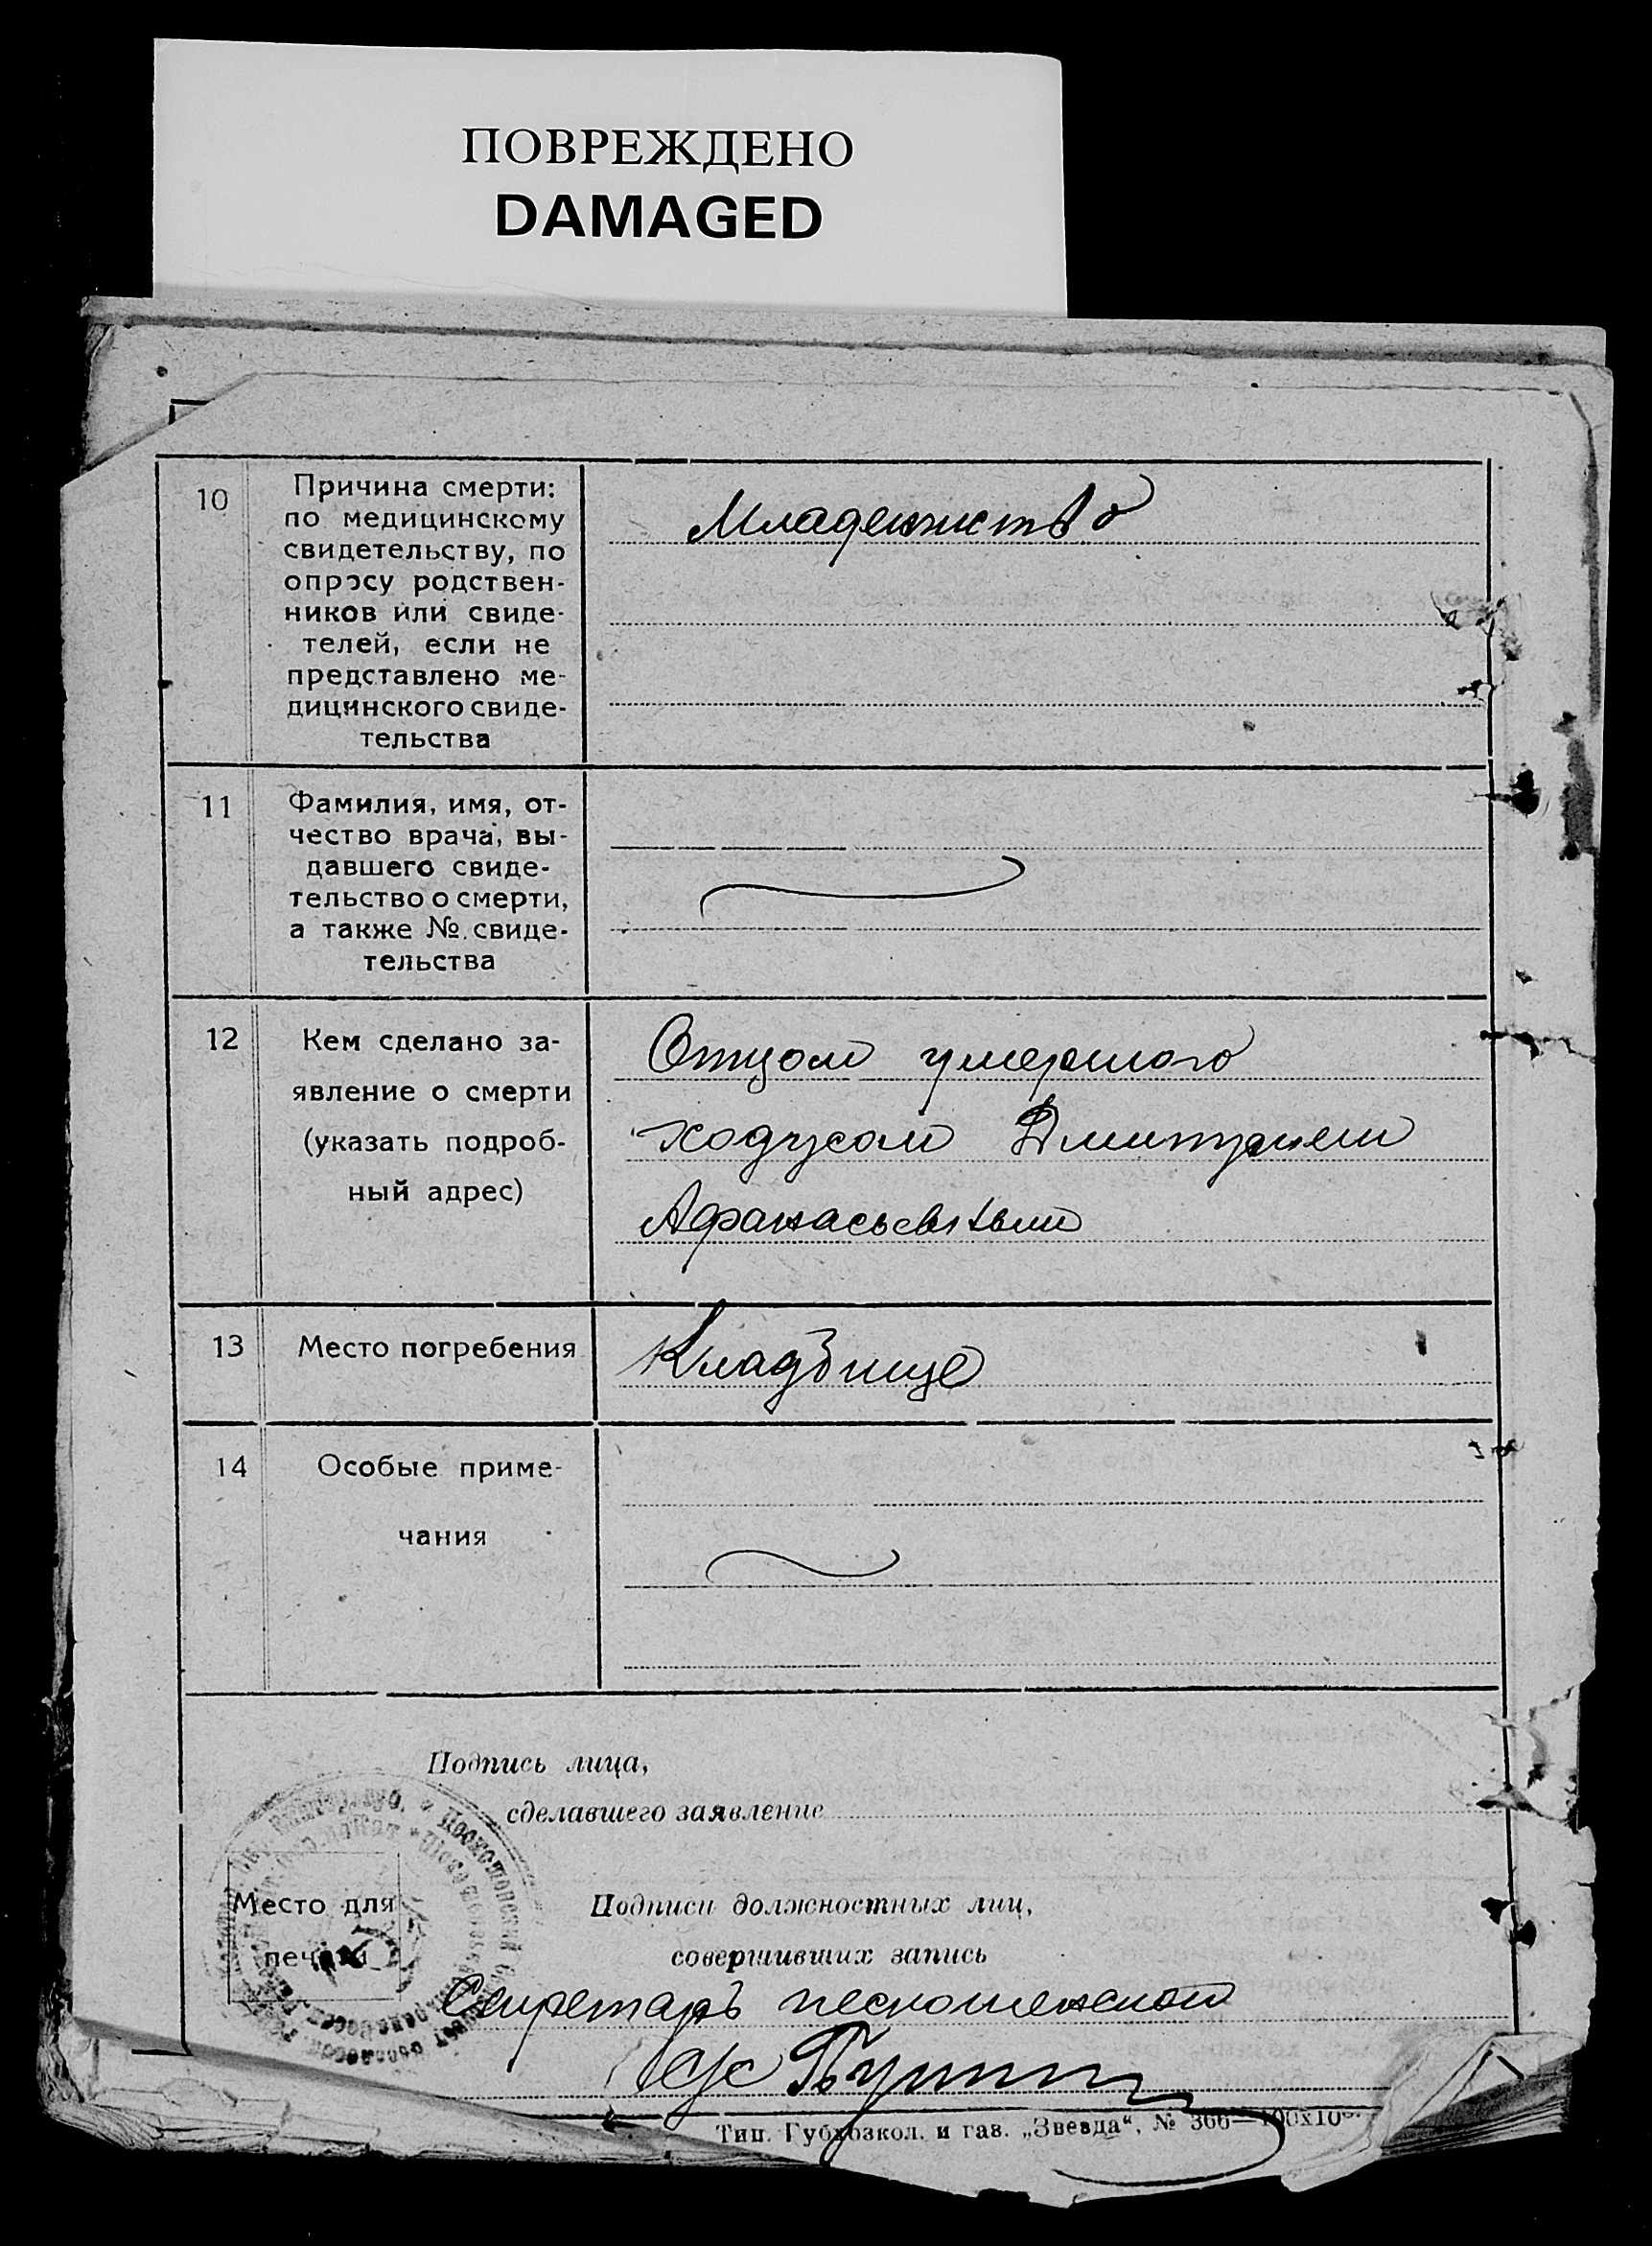 ПОВРЕЖДЕНО
DAMAGED
10
Причина смерти:
по медицинскому
свидетельству, по
опросу родствен-
ников или свиде-
телей, если не
представлено ме-
дицинского свиде-
тельства
Младенчество
11
Фамилия, имя, от-
чество врача, вы-
давшего свиде-
тельство о смерти,
а также №. свиде-
тельства
12
Кем сделано за-
явление о смерти
(указать подроб-
ный адрес)
Отцом умершого
Ходусом Дмитрием
Афанасьевым
13
Место погребения
Кладбище
14
Особые приме-
чания
Подпись лица,
сделавшего заявление
Место для
печати
Подписи должностных лиц,
совершивших запись
Секретарь
Тип. Губхозкол. и газ. „Звезда“, № 366—100х10